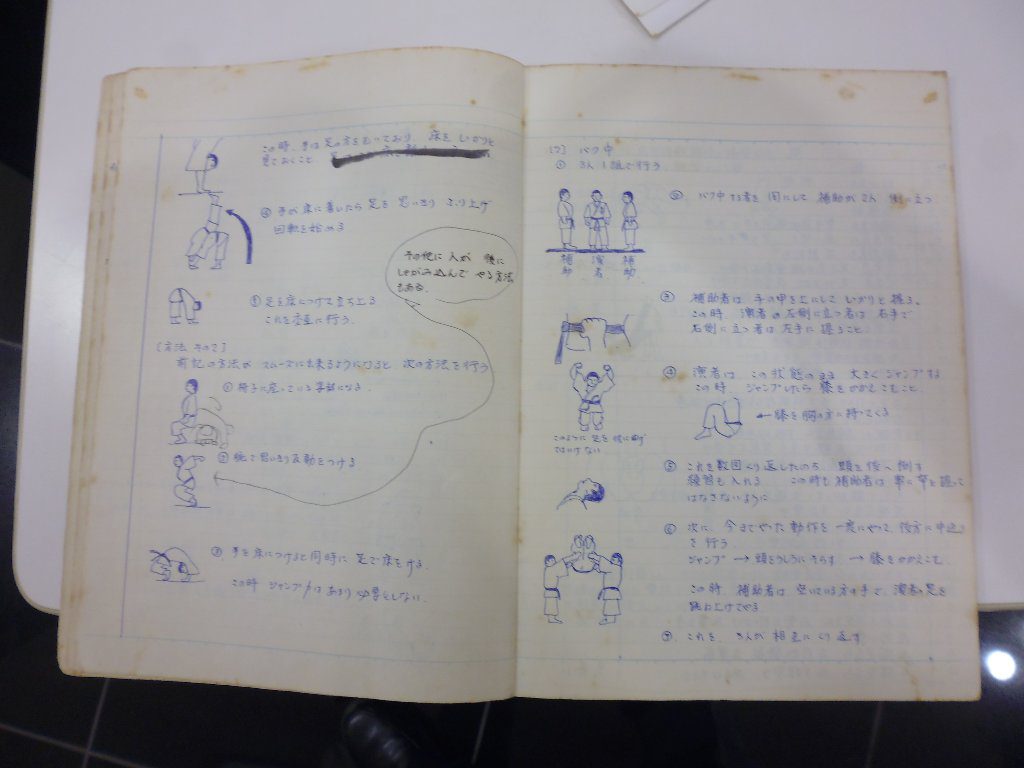 この時、手は足の方をむいており 床を しっかりと
見ておくこと
④ 手が床に着いたら 足を 思いきり ふり上げ
回転を始める
その他に 人が 後に
しゃがみ込んで やる方法
もある.
⑤ 足を床につけて立ち上る
これを に行う.
〔方法 その2〕
前記の方法が スムーズに出来るようになると 次の方法を行う
① 椅子に座っている 姿勢になる.
② 腕で思いきり反動をつける
③ 手を床につけると同時に 足で床をける.
この時 ジャンプ力はあまり 必要としない.
〔7〕 バク中
① 3人1組で行う.
② バク中する者を 間にして 補助が 2人 側に立つ.
補助
演者
補助
③ 補助者は 手の甲を上にして しっかりと 握る.
この時 演者の左側に立つ者は 右手で
右側に立つ者は 左手に 握ること
④ 演者は この状態のまま 大きくジャンプする
この時 ジャンプしたら 膝をかかえこむこと.
←膝を胸の方に持ってくる
このように 足を後に曲げ
てはいけない
⑤ これを数回くり返したのち 頭を後へ倒す
練習も入れる この時も補助者は 帯を握って
はなさないように
⑥ 次に、今までやった動作を 一度にやって、後方に中返り
を行う.
ジャンプ → 頭をうしろにそらす → 膝をかかえこむ
この時、補助者は 空いている方の手で、演者の足を
跳ね上げてやる
⑦ これを、3人が 相互にくり返す